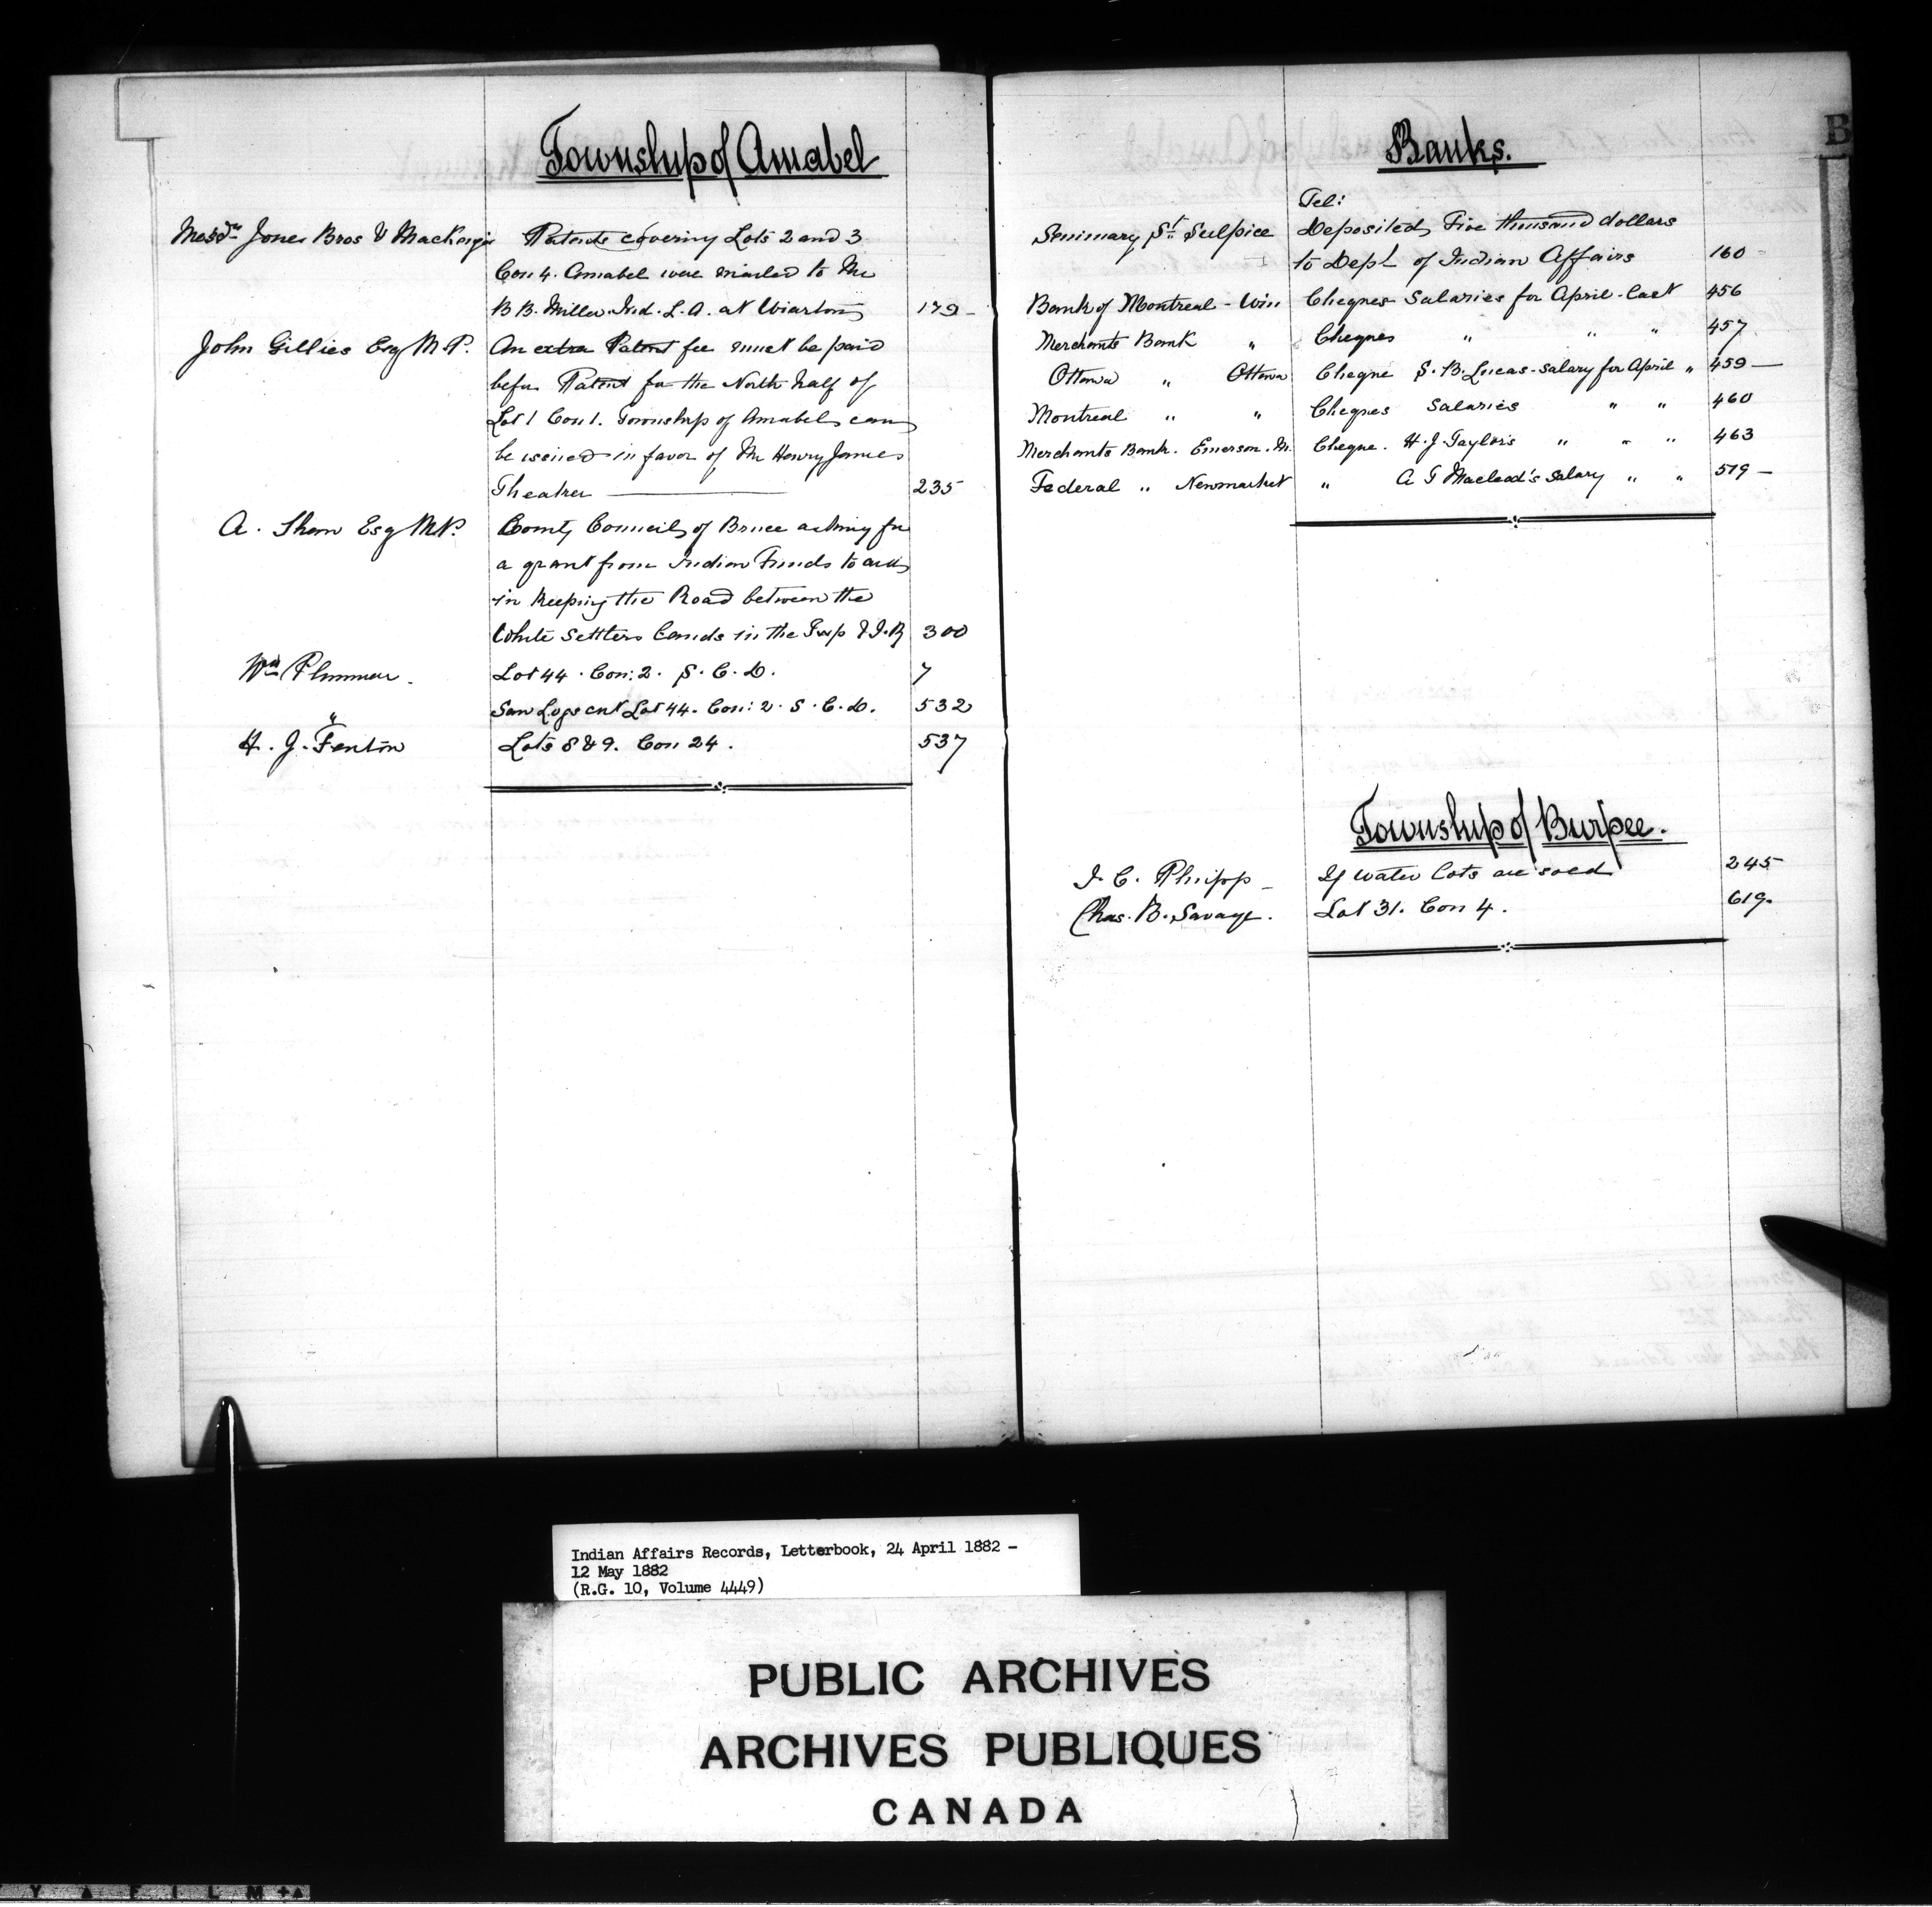 Township of Amabel
Messrs Jones Bros & Mackenzie Patents covering Lots 2 and 3
Con 4. Amabel were mailed to Mr
B B. Miller Ind. L. A. at Wiarton 179-
John Gillies Esq M.P. An extra Patent fee must be paid
before Patent for the North half of
Lot 1 Con 1. Township of Amabel can
be issued in favor of Mr Henry James
Theatrer 235
A. Shaw Esq M.P. County Council of Bruce asking for
a grant from Indian Funds to aid
in keeping the Road between the
White Settlers Lands in the Twp & I.R 300
Wm Plummer. Lot 44. Con: 2. S. C. D. 7
" Saw Logs cut Lot 44. Con: 2. S. C. D. 532
H. J. Fenton Lots 8 & 9. Con 24. 537
Banks.
B
Tel:
Seminary St. Sulpice Deposited Five thousand dollars
to Dept of Indian Affairs 160
Bank of Montreal - Win Cheques Salaries for April-last 456
Merchants Bank " Cheques " " " 457
Ottawa " Ottawa Cheque S. B. Lucas-Salary for April " 459
Montreal " " Cheques Salaries " " 460
Merchants Bank. Emerson. M. Cheque. H. J. Taylor's " " " 463
Federal " Newmarket " A G Macleod's Salary " " 519
Township of Burpee.
J. C. Phipps If water lots are sold 245
Chas. B. Savage. Lot 31. Con 4. 619.
Indian Affairs Records, Letterbook, 24 April 1882 -
12 May 1882
(R.G. 10, Volume 4449)
PUBLIC ARCHIVES
ARCHIVES PUBLIQUES
CANADA